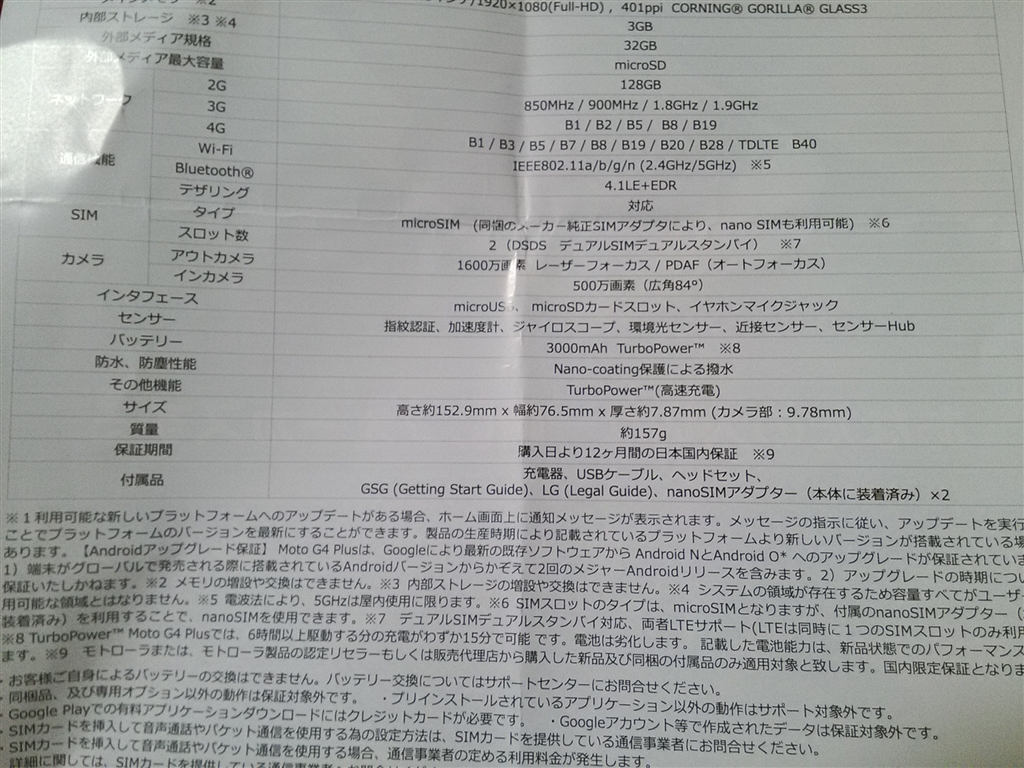 1920×1080(Full-HD) , 401ppi CORNING® GORILLA® GLASS3
※2 3GB
内部ストレージ ※3 ※4 32GB
外部メディア規格 microSD
外部メディア最大容量 128GB
ネットワーク 2G 850MHz / 900MHz / 1.8GHz / 1.9GHz
3G B1 / B2 / B5 / B8 / B19
4G B1 / B3 / B5 / B7 / B8 / B19 / B20 / B28 / TDLTE B40
通信機能 Wi-Fi IEEE802.11a/b/g/n (2.4GHz/5GHz) ※5
Bluetooth® 4.1LE+EDR
テザリング 対応
SIM タイプ microSIM (同梱のメーカー純正SIMアダプタにより、nano SIMも利用可能) ※6
スロット数 2(DSDS デュアルSIMデュアルスタンバイ) ※7
カメラ アウトカメラ 1600万画素 レーザーフォーカス / PDAF(オートフォーカス)
インカメラ 500万画素(広角84°)
インタフェース microUSB、 microSDカードスロット、イヤホンマイクジャック
センサー 指紋認証、加速度計、ジャイロスコープ、環境光センサー、近接センサー、センサーHub
バッテリー 3000mAh TurboPower™ ※8
防水、防塵性能 Nano-coating保護による撥水
その他機能 TurboPower™(高速充電)
サイズ 高さ約152.9mm x 幅約76.5mm x 厚さ約7.87mm (カメラ部:9.78mm)
質量 約157g
保証期間 購入日より12ヶ月間の日本国内保証 ※9
付属品 充電器、USBケーブル、ヘッドセット、
GSG (Getting Start Guide)、LG (Legal Guide)、nanoSIMアダプター(本体に装着済み)×2
※1利用可能な新しいプラットフォームへのアップデートがある場合、ホーム画面上に通知メッセージが表示されます。メッセージの指示に従い、アップデートを実行
ことでプラットフォームのバージョンを最新にすることができます。製品の生産時期により記載されているプラットフォームより新しいバージョンが搭載されている場
あります。【Androidアップグレード保証】 Moto G4 Plusは、Googleにより最新の既存ソフトウェアから Android NとAndroid O* へのアップグレードが保証されていま
1) 端末がグローバルで発売される際に搭載されているAndroidバージョンからかぞえて2回のメジャーAndroidリリースを含みます。2) アップグレードの時期につい
保証いたしかねます。※2 メモリの増設や交換はできません。※3 内部ストレージの増設や交換はできません。※4 システムの領域が存在するため容量すべてがユーザー
用可能な領域とはなりません。※5 電波法により、5GHzは屋内使用に限ります。※6 SIMスロットのタイプは、microSIMとなりますが、付属のnanoSIMアダプター(
装着済み)を利用することで、nanoSIMを使用できます。※7 デュアルSIMデュアルスタンバイ対応、両者LTEサポート(LTEは同時に1つのSIMスロットのみ利用
※8 TurboPower™ Moto G4 Plusでは、6時間以上駆動する分の充電がわずか15分で可能 です。電池は劣化します。 記載した電池能力は、新品状態でのパフォーマンス
ます。※9 モトローラまたは、モトローラ製品の認定リセラーもしくは販売代理店から購入した新品及び同梱の付属品のみ適用対象と致します。国内限定保証となりま
・お客様ご自身によるバッテリーの交換はできません。バッテリー交換についてはサポートセンターにお問合せください。
・同梱品、及び専用オプション以外の動作は保証対象外です。 ・プリインストールされているアプリケーション以外の動作はサポート対象外です。
・Google Playでの有料アプリケーションダウンロードにはクレジットカードが必要です。 ・Googleアカウント等で作成されたデータは保証対象外です。
・SIMカードを挿入して音声通話やパケット通信を使用する為の設定方法は、SIMカードを提供している通信事業者にお問合せください。
・SIMカードを挿入して音声通話やパケット通信を使用する場合、通信事業者の定める利用料金が発生します。
詳細に関しては、SIMカードを提供している通信事業者へお問合せください。